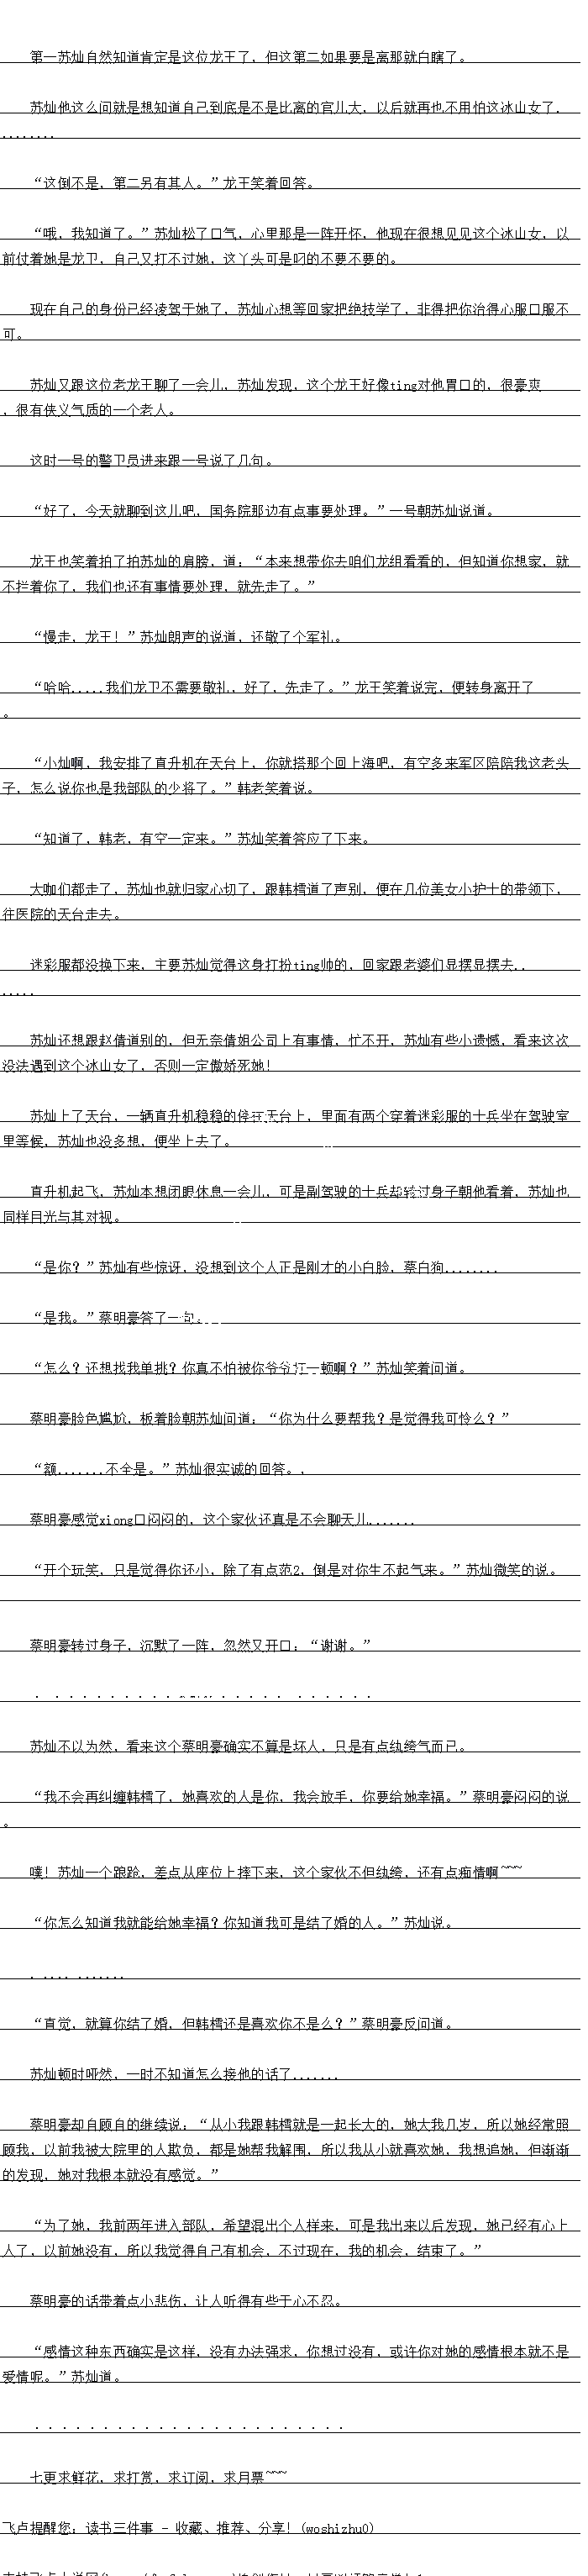 第一苏灿自然知道肯定是这位龙王了，但这第二如果要是离那就白瞎了。
苏灿他这么问就是想知道自己到底是不是比离的官儿大，以后就再也不用怕这冰山女了.
........
“这倒不是，第二另有其人。”龙王笑着回答。
“哦，我知道了。”苏灿松了口气，心里那是一阵开怀，他现在很想见见这个冰山女，以
前仗着她是龙卫，自己又打不过她，这丫头可是叼的不要不要的。
现在自己的身份已经凌驾于她了，苏灿心想等回家把绝技学了，非得把你治得心服口服不
可。
苏灿又跟这位老龙王聊了一会儿，苏灿发现，这个龙王好像ting对他胃口的，很豪爽
，很有侠义气质的一个老人。
这时一号的警卫员进来跟一号说了几句。
“好了，今天就聊到这儿吧，国务院那边有点事要处理。”一号朝苏灿说道。
龙王也笑着拍了拍苏灿的肩膀，道：“本来想带你去咱们龙组看看的，但知道你想家，就
不拦着你了，我们也还有事情要处理，就先走了。”
“慢走，龙王！”苏灿朗声的说道，还敬了个军礼。
“哈哈.....我们龙卫不需要敬礼，好了，先走了。”龙王笑着说完，便转身离开了
。
“小灿啊，我安排了直升机在天台上，你就搭那个回上海吧，有空多来军区陪陪我这老头
子，怎么说你也是我部队的少将了。”韩老笑着说。
“知道了，韩老，有空一定来。”苏灿笑着答应了下来。
大咖们都走了，苏灿也就归家心切了，跟韩樰道了声别，便在几位美女小护士的带领下，
往医院的天台走去。
迷彩服都没换下来，主要苏灿觉得这身打扮ting帅的，回家跟老婆们显摆显摆去..
.....
苏灿还想跟赵倩道别的，但无奈倩姐公司上有事情，忙不开，苏灿有些小遗憾，看来这次
没法遇到这个冰山女了，否则一定傲娇死她！
苏灿上了天台，一辆直升机稳稳的停在天台上，里面有两个穿着迷彩服的士兵坐在驾驶室
里等候，苏灿也没多想，便坐上去了。
直升机起飞，苏灿本想闭眼休息一会儿，可是副驾驶的士兵却转过身子朝他看着，苏灿也
同样目光与其对视。
“是你？”苏灿有些惊讶，没想到这个人正是刚才的小白脸，蔡白狗........
“是我。”蔡明豪答了一句。
“怎么？还想找我单挑？你真不怕被你爷爷打一顿啊？”苏灿笑着问道。
蔡明豪脸色尴尬，板着脸朝苏灿问道：“你为什么要帮我？是觉得我可怜么？”
“额.......不全是。”苏灿很实诚的回答。.
蔡明豪感觉xiong口闷闷的，这个家伙还真是不会聊天儿.......
“开个玩笑，只是觉得你还小，除了有点范2，倒是对你生不起气来。”苏灿微笑的说。
蔡明豪转过身子，沉默了一阵，忽然又开口：“谢谢。”
苏灿不以为然，看来这个蔡明豪确实不算是坏人，只是有点纨绔气而已。
“我不会再纠缠韩樰了，她喜欢的人是你，我会放手，你要给她幸福。”蔡明豪闷闷的说
。
噗！苏灿一个踉跄，差点从座位上摔下来，这个家伙不但纨绔，还有点痴情啊~~~
“你怎么知道我就能给她幸福？你知道我可是结了婚的人。”苏灿说。
. .... .......
“直觉，就算你结了婚，但韩樰还是喜欢你不是么？”蔡明豪反问道。
苏灿顿时哑然，一时不知道怎么接他的话了.......
蔡明豪却自顾自的继续说：“从小我跟韩樰就是一起长大的，她大我几岁，所以她经常照
顾我，以前我被大院里的人欺负，都是她帮我解围，所以我从小就喜欢她，我想追她，但渐渐
的发现，她对我根本就没有感觉。”
“为了她，我前两年进入部队，希望混出个人样来，可是我出来以后发现，她已经有心上
人了，以前她没有，所以我觉得自己有机会，不过现在，我的机会，结束了。”
蔡明豪的话带着点小悲伤，让人听得有些于心不忍。
“感情这种东西确实是这样，没有办法强求，你想过没有，或许你对她的感情根本就不是
爱情呢。”苏灿道。
. . . . . . . . . . . . . . . . . . . . . . .
七更求鲜花，求打赏，求订阅，求月票~~~
飞卢提醒您：读书三件事 - 收藏、推荐、分享！(woshizhu0)